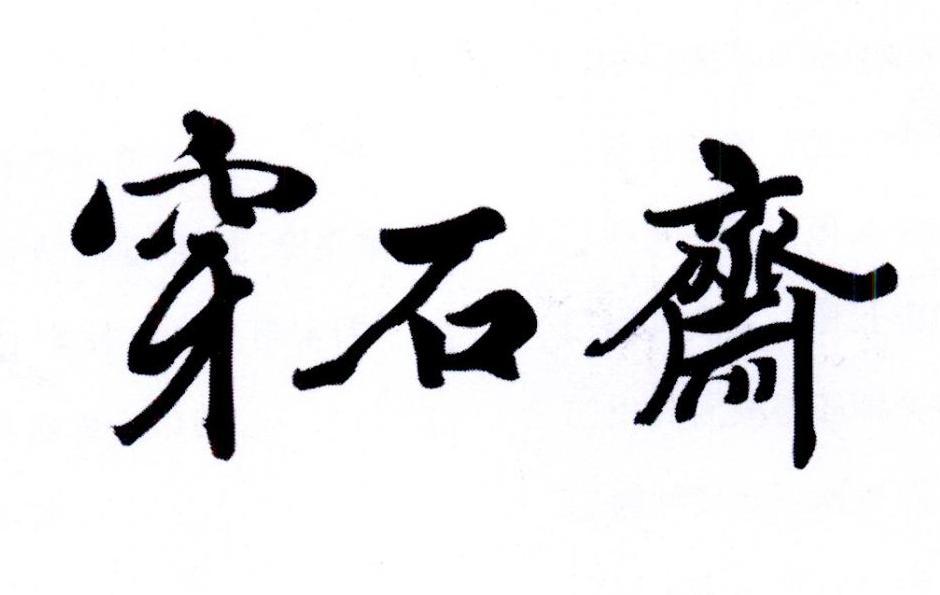 穿石齋